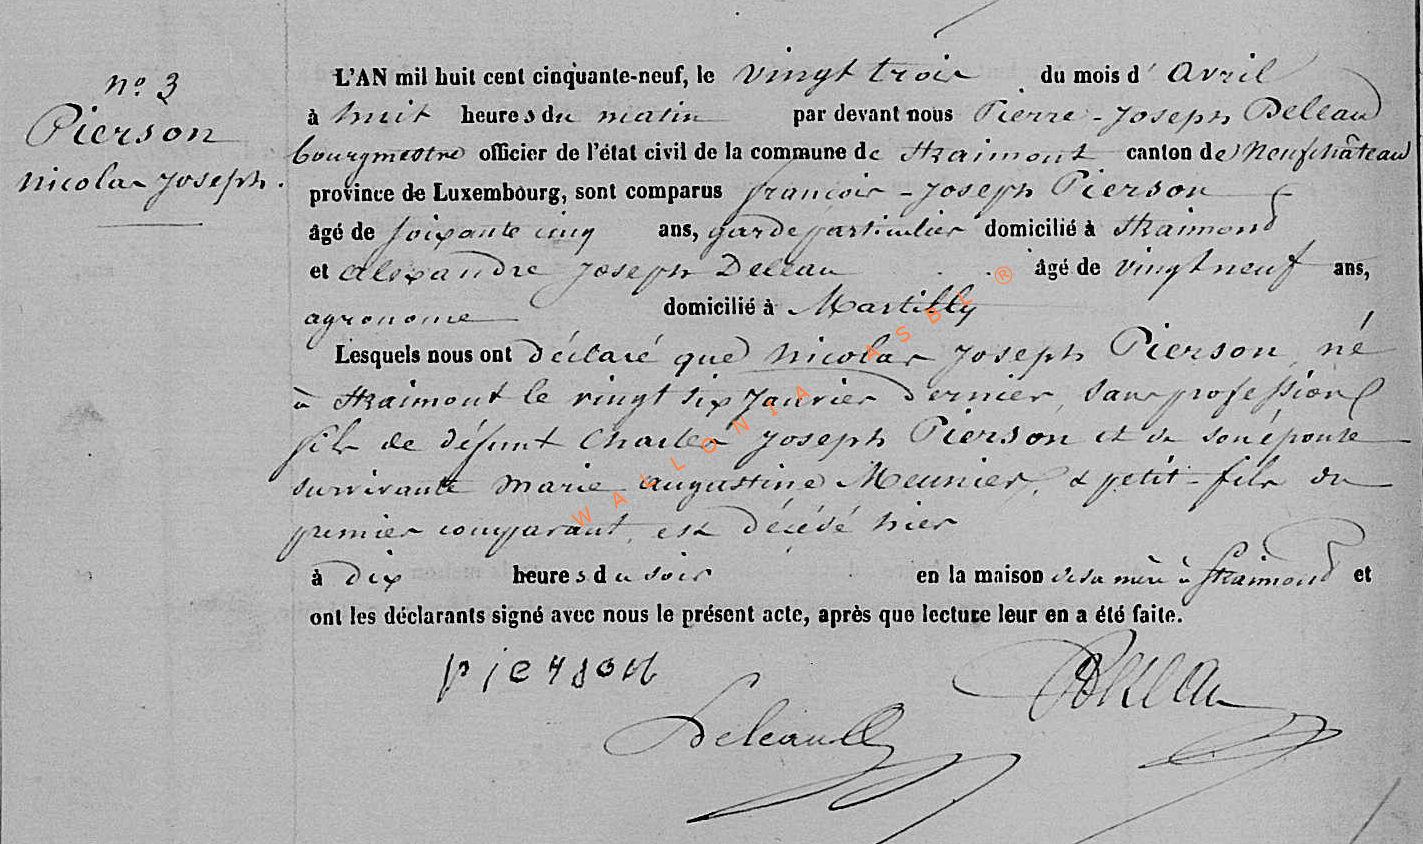 n° 3
Pierson
Nicolas Joseph.
L'AN mil huit cent cinquante-neuf, le vingt trois du mois d' avril
à huit heures du matin par devant nous Pierre-Joseph Deleau
bourgmestre officier de l'état civil de la commune de Straimont canton de Neufchâteau
province de Luxembourg, sont comparus françois-Joseph Pierson
âgé de soixante cinq ans, garde particulier domicilié à Straimont
et Alexandre Joseph Deleau âgé de vingt neuf ans,
agronome domicilié à Martilly
Lesquels nous ont déclaré que Nicolas Joseph Pierson, né
à Straimont le vingt six Janvier dernier, sans profession
fils de défunt Charles Joseph Pierson et de son épouse
survivante Marie Augustine Meunier, & petit-fils du
premier comparant, est décédé hier
à dix heures du soir en la maison de sa mère à Straimont et
ont les déclarants signé avec nous le présent acte, après que lecture leur en a été faite.
pierson
Deleau
Deleau
WALLONIA ASBL ®